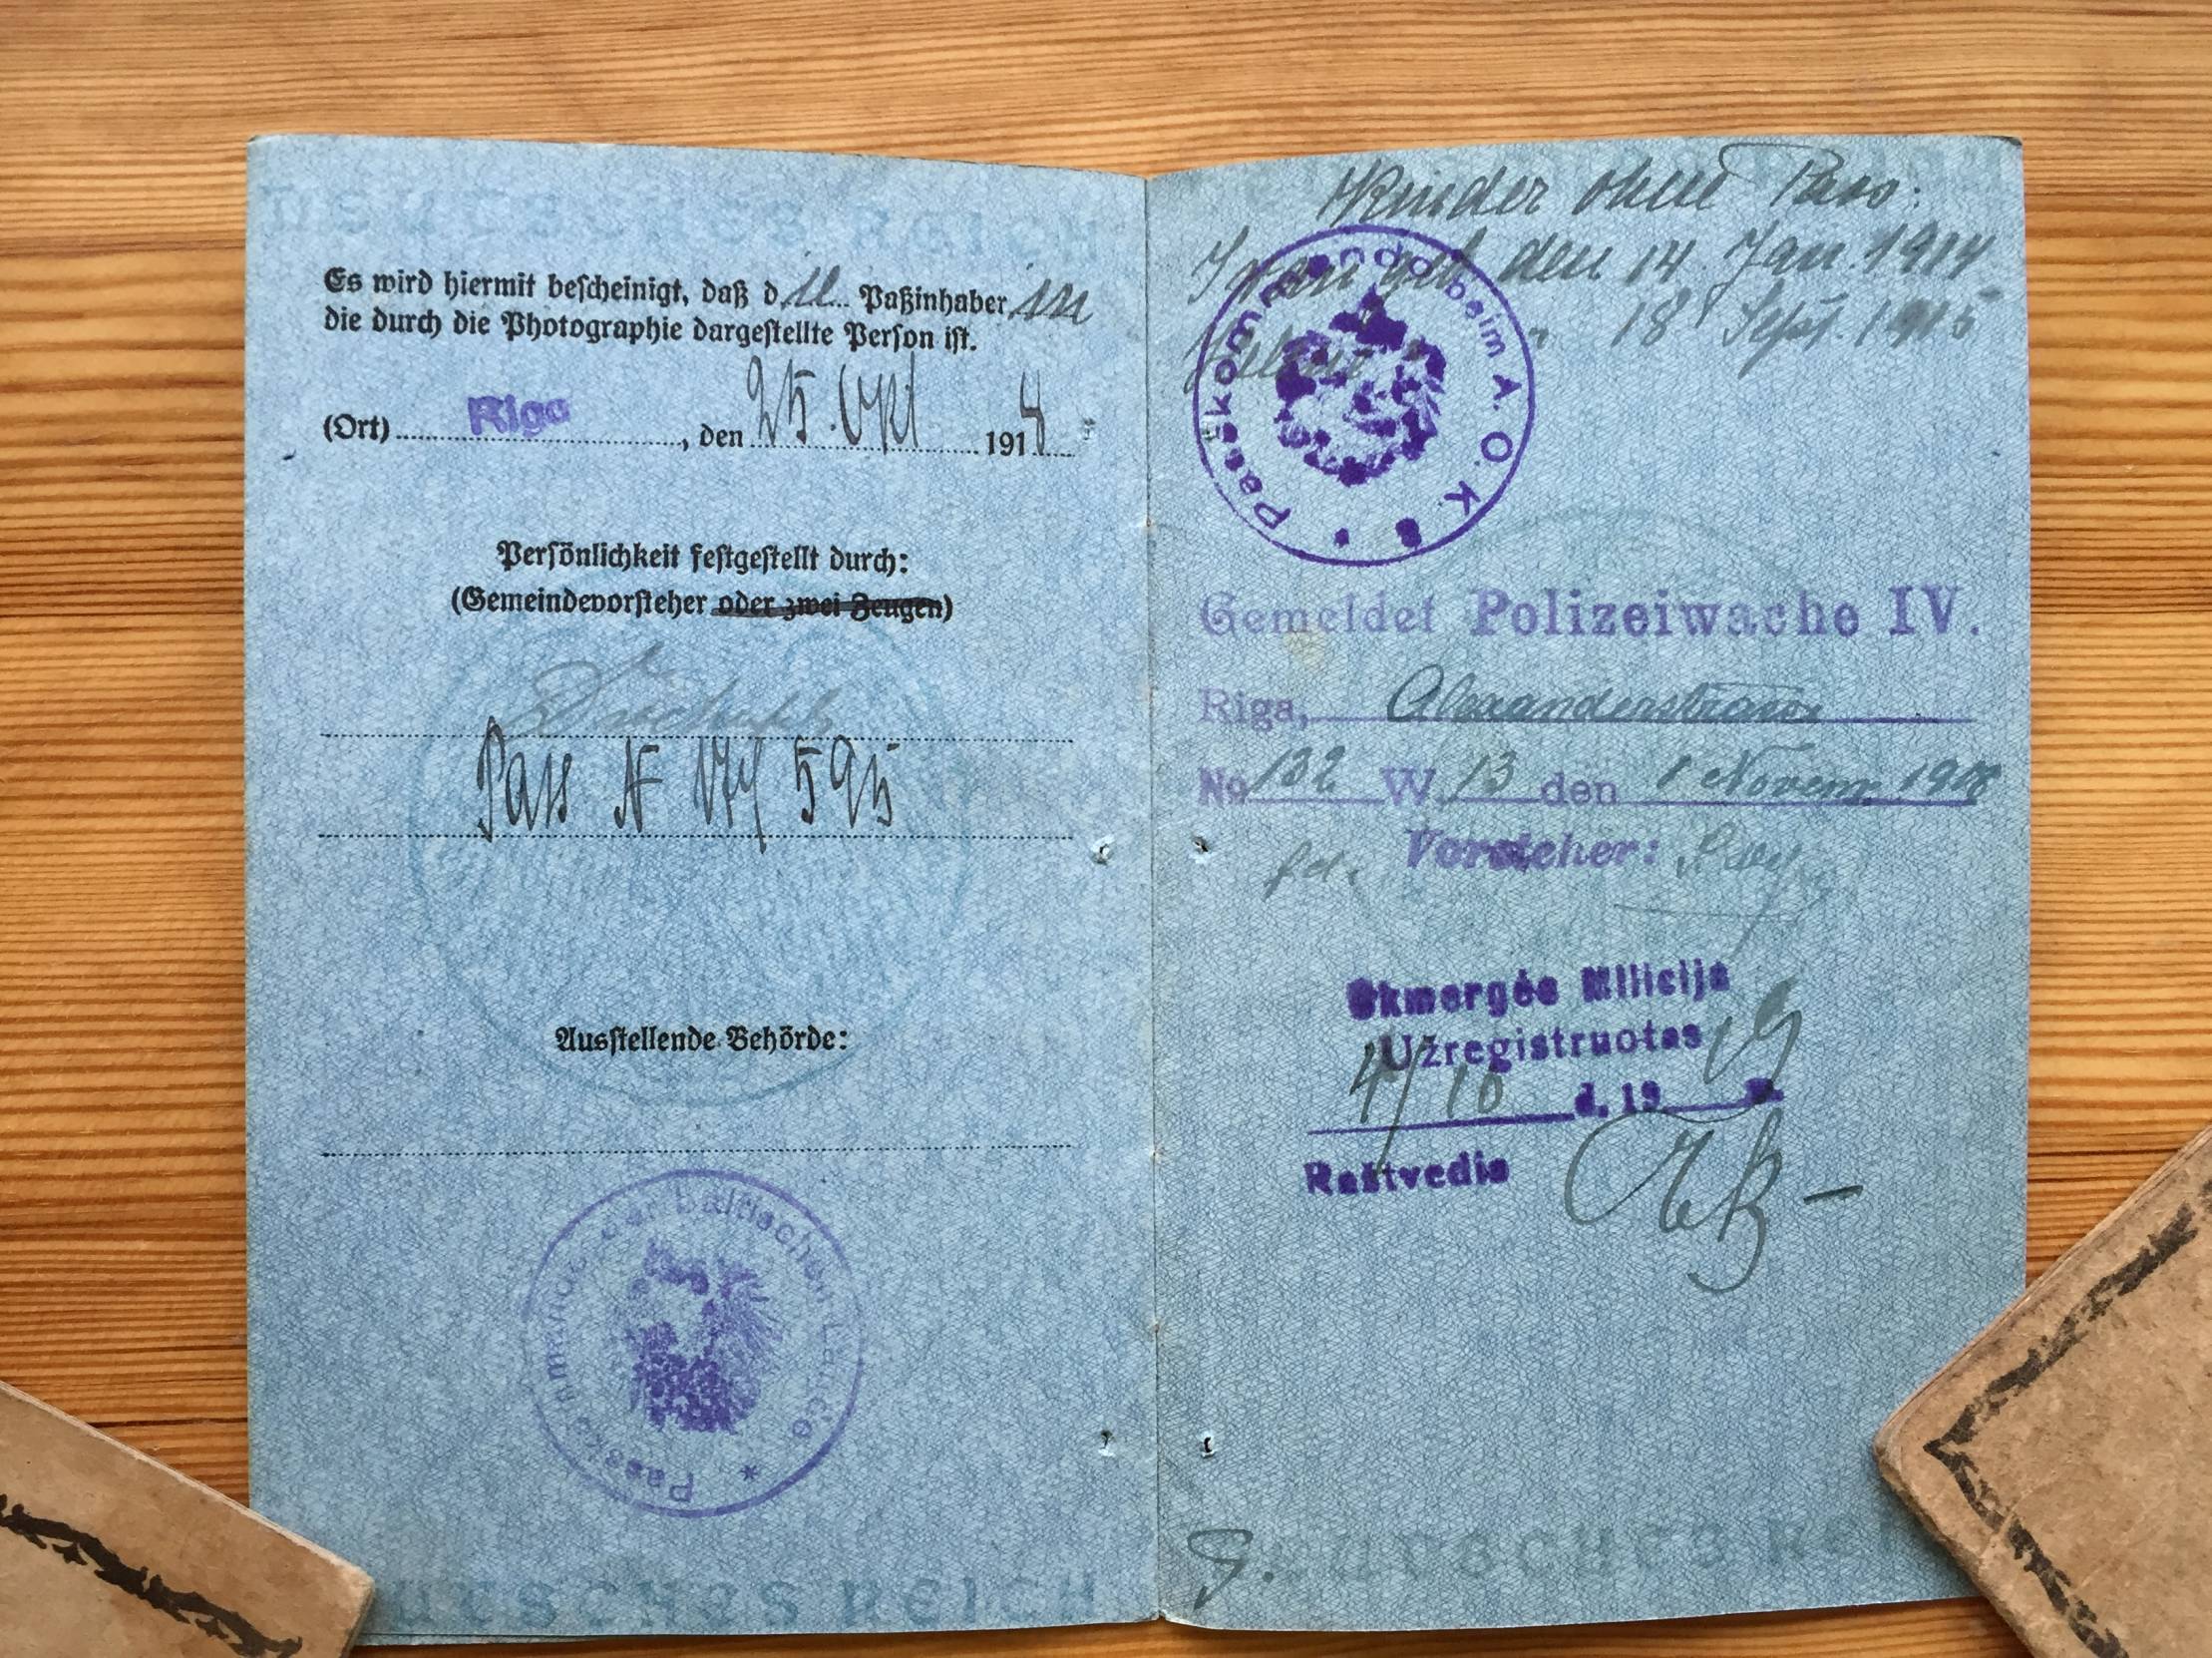 DEUTSCHES REICH
Es wird hiermit bescheinigt, daß die Paßinhaberin
die durch die Photographie dargestellte Person ist.
(Ort) Riga, den 25. Okt 1918
Persönlichkeit festgestellt durch:
(Gemeindevorsteher oder zwei Zeugen)
Pass N 595
Ausstellende Behörde:
Passkommando der baltischen Lande
DEUTSCHES REICH
Kinder ohne Pass:
Iwan geb den 14. Jan. 1914
" 18 Sept. 1915
Passkommando beim A. O. K. 8
Gemeldet Polizeiwache IV.
Riga, Alexanderstrasse
No 132 W. 13 den 1 Novem 1918
Vorsteher:
Ukmergės Milicija
Užregistruotas
4/10 d. 19 19 m.
Raštvedis
DEUTSCHES RE